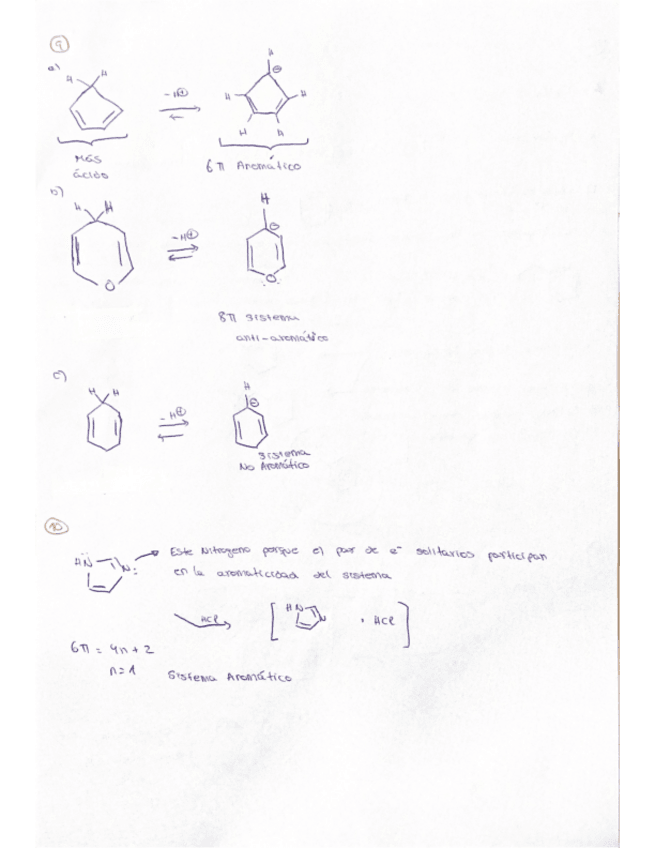 9
a)
H H
-H⊕
H
⊖
H H
H H
Más
ácido
6π Aromático
b)
H H
-H⊕
H
⊖
O
O
8π sistema
anti-aromático
c)
H H
-H⊕
H
⊖
sistema
No Aromático
10
HN N: Este Nitrogeno porque el par de e⁻ solitarios participan
en la aromaticidad del sistema
HCl [ HN N · HCl ]
6π = 4n + 2
n=1 Sistema Aromático